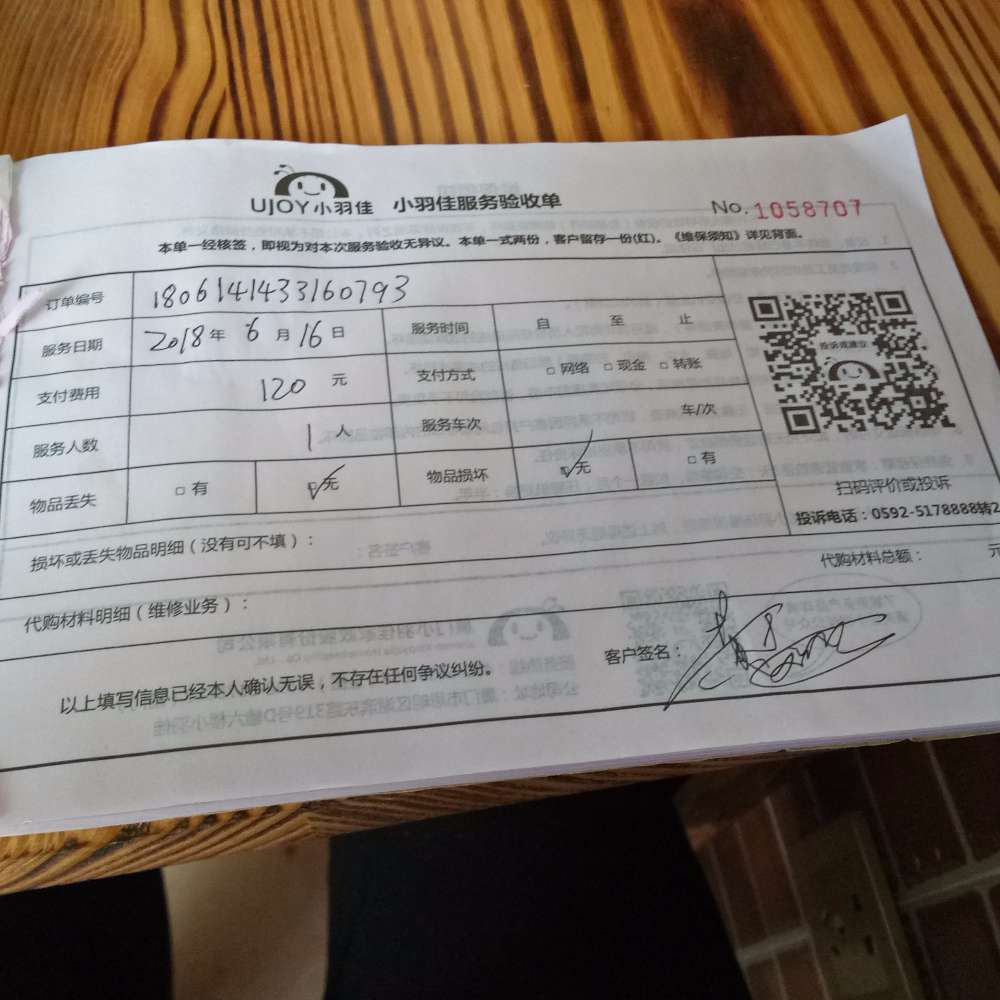 UJOY小羽佳 小羽佳服务验收单 No. 1058707
本单一经核签，即视为对本次服务验收无异议。本单一式两份，客户留存一份(红)。《维保须知》详见背面。
订单编号 1806141433160793
服务日期 2018年 6月16日 服务时间 自 至 止
支付费用 120 元 支付方式 □网络 □现金 □转账
服务人数 1人 服务车次 车/次
物品丢失 □有 ☑无 物品损坏 ☑无 □有
投诉或建议
扫码评价或投诉
投诉电话：0592-5178888转2
损坏或丢失物品明细（没有可不填）：
代购材料明细（维修业务）： 代购材料总额： 元
以上填写信息已经本人确认无误，不存在任何争议纠纷。 客户签名：